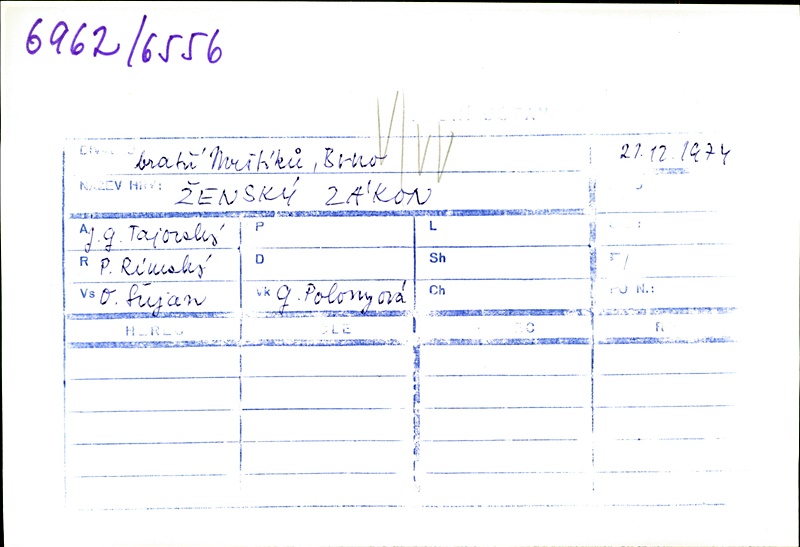 6962/6556
bratří Mrštíků, Brno 21.12.1974
NÁZEV HRY: ŽENSKÝ ZÁKON
A J. G. Tajovský P L
R P. Rímský D Sh
Vs O. Šujan Vk G. Polonyová Ch
HEREC